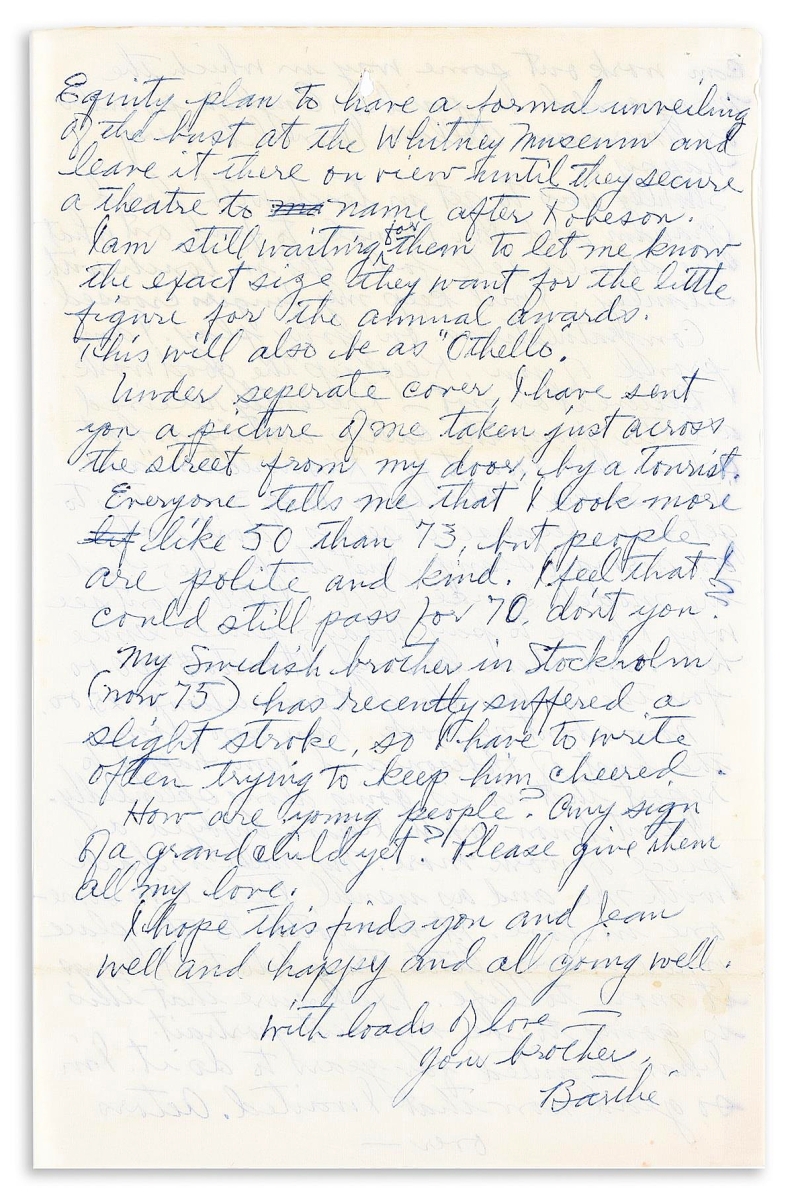 Equity plan to have a formal unveiling
of the bust at the Whitney Museum and
leave it there on view until they secure
a theatre to ma name after Robeson.
I am still waiting for them to let me know
the exact size they want for the little
figure for the annual awards.
This will also be as "Othello".
Under seperate cover, I have sent
you a picture of me taken just across
the street from my door, by a tourist.
Everyone tells me that I look more
lik like 50 than 73, but people
are polite and kind. I feel that I
could still pass for 70, don't you?
My Swedish brother in Stockholm
(now 75) has recently suffered a
slight stroke, so I have to write
often trying to keep him cheered.
How are young people? Any sign
of a grandchild yet? Please give them
all my love.
I hope this finds you and Jean
well and happy and all going well.
With loads of love —
Your brother,
Barthé